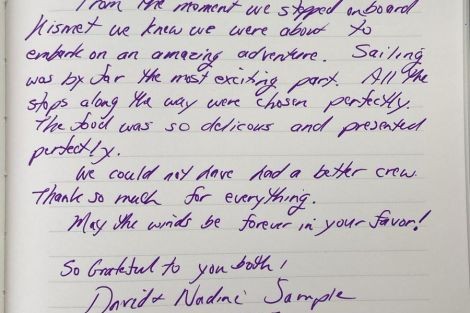 From the moment we stepped onboard
Kismet we knew we were about to
embark on an amazing adventure. Sailing
was by far the most exciting part. All the
stops along the way were chosen perfectly.
The food was so delicous and presented
perfectly.
We could not have had a better crew.
Thank so much for everything.
May the winds be forever in your favor!
So Grateful to you both!
David & Nadine Sample